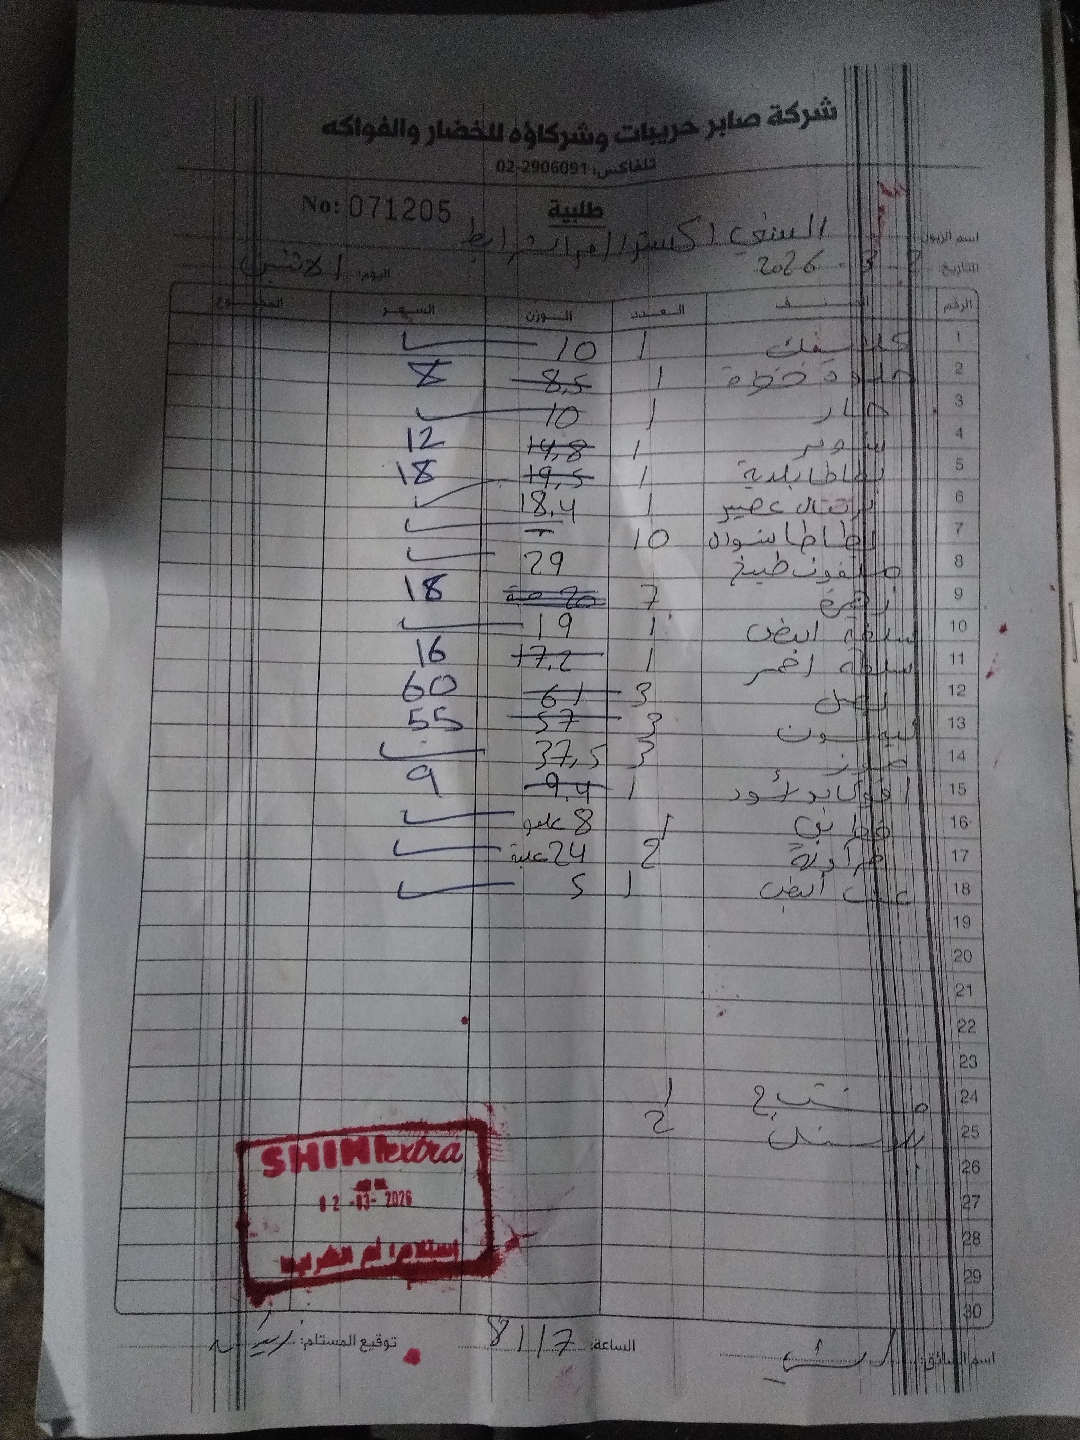 شركة صابر حريبات وشركاؤه للخضار والفواكه
تلفاكس: 02-2906091
طلبية
No: 071205
اسم الزبون: السني اكسترا ام الشرايط
التاريخ: 2 - 3 - 2026 اليوم: الاثنين
الرقم الصنف العدد الوزن السعر المجموع
1 كلاسيك 1 10
2 حلوة خضرة 1 8,5 8
3 حار 1 10
4 1 14,8 12
5 بطاطا بلدية 1 19,5 18
6 برتقال عصير 1 18,4
7 10
8 ملفوف طبيخ 29
9 زهرة 7 18
10 سلطة ابيض 1 19
11 سلطة احمر 1 17,2 16
12 بصل 3 61 60
13 ليمون 3 57 55
14 3 37,5
15 1 9,4 9
16 1 8
17 فراولة 2 24 علبة
18 عنب ابيض 1 5
19
20
21
22
23
24 1
25 2
26
27
28
29
30
SHINI extra
02 -03- 2026
استلام: ام الشرايط
اسم السائق: الساعة: 8/17 توقيع المستلم: